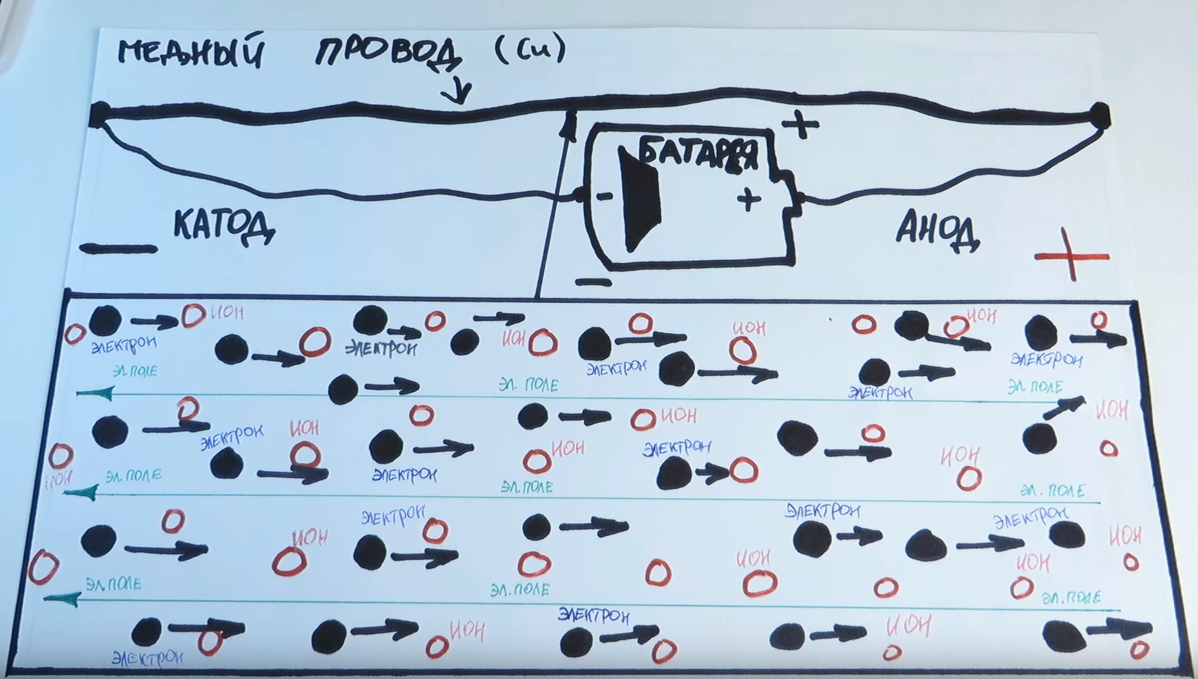 МЕДНЫЙ ПРОВОД (Cu)
+
БАТАРЕЯ
- +
КАТОД
АНОД
— — +
ИОН ИОН
ЭЛЕКТРОН ЭЛЕКТРОН ИОН ИОН ЭЛЕКТРОН
ЭЛЕКТРОН ЭЛЕКТРОН
ЭЛ.ПОЛЕ ЭЛ. ПОЛЕ ЭЛ. ПОЛЕ
ИОН ИОН
ЭЛЕКТРОН ИОН ИОН ЭЛЕКТРОН ИОН
ИОН ЭЛ. ПОЛЕ ЭЛЕКТРОН ЭЛ. ПОЛЕ ЭЛ. ПОЛЕ
ЭЛЕКТРОН ЭЛЕКТРОН ЭЛЕКТРОН
ИОН ИОН
ИОН ИОН
ЭЛ.ПОЛЕ ЭЛ. ПОЛЕ ЭЛ. ПОЛЕ
ЭЛЕКТРОН ИОН
ИОН
ЭЛЕКТРОН